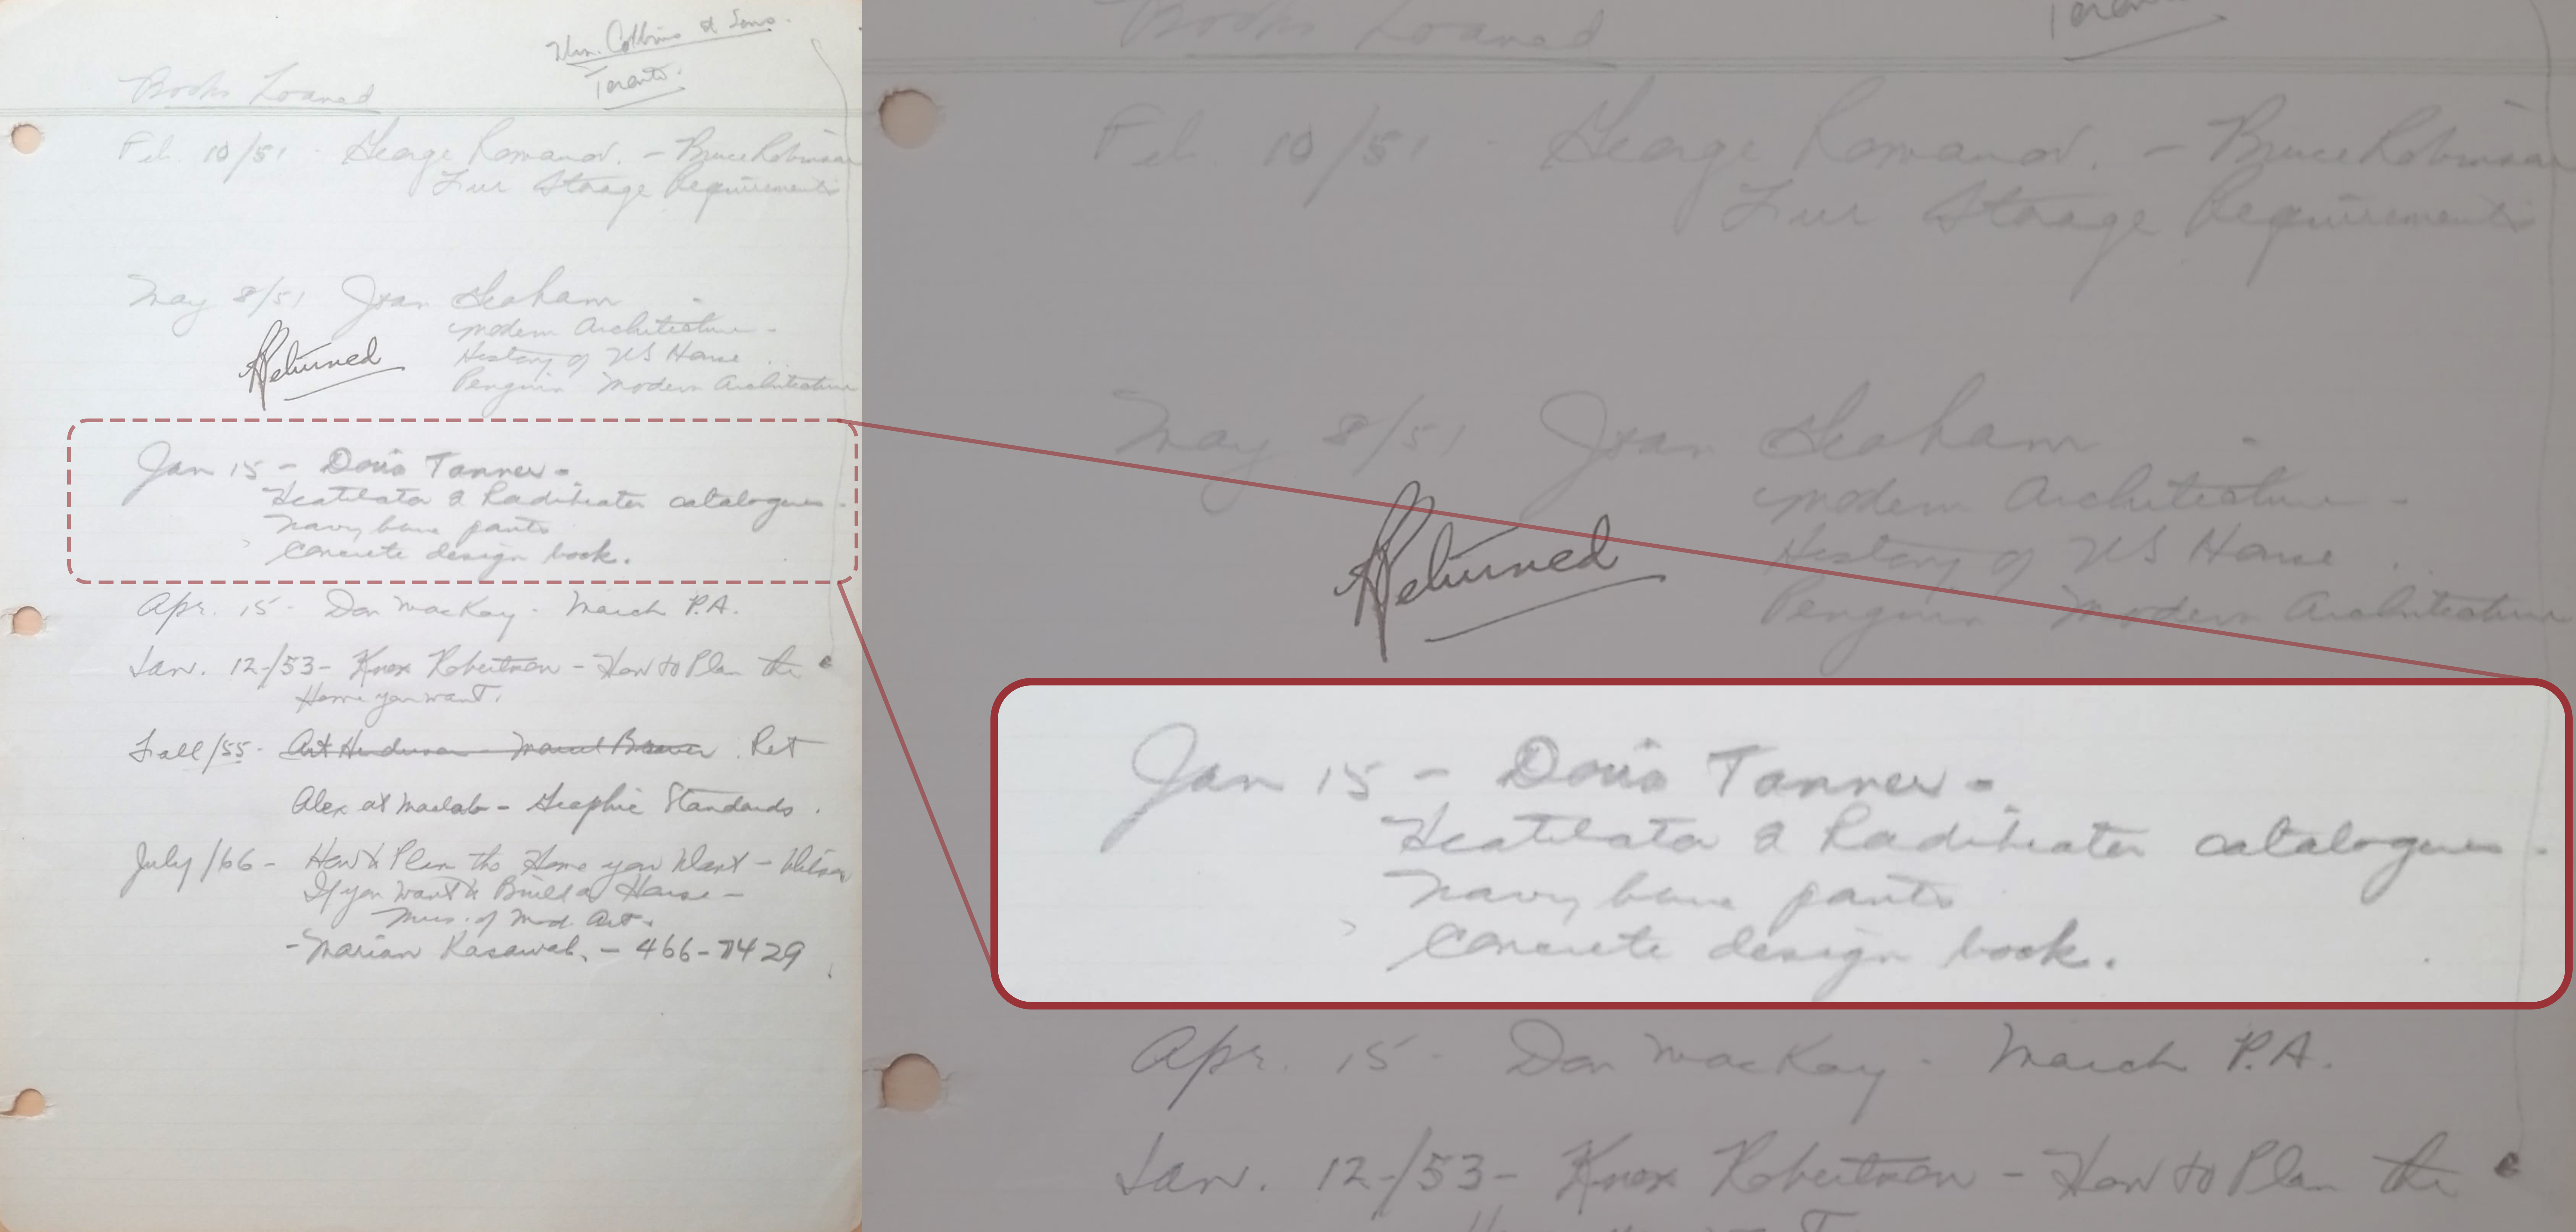 Wm. Collins & Sons.
Toronto.
Books Loaned
Feb. 10/51 - George Romanov. - Bruce Robinson
Fur Storage Requirements
May 8/51 Joan Graham -
Modern Architecture -
History of US House
Penguin Modern Architecture
Returned
Jan 15 - Doris Tanner -
Heatilator & Radiheater catalogues -
Navy base pants
Concrete design book.
Apr. 15 - Don MacKay - March P.A.
Jan. 12-/53 - Knox Robertson - How to Plan the
Home you want.
Fall/55 - Art Henderson - Marcel Breuer. Ret
Alex at Maclab - Graphic Standards.
July/66 - How to Plan the Home you Want - Wilson
If you Want to Build a House -
Mus. of Mod. Art.
- Marian Kasawab. - 466-7429
Books Loaned
Toronto
Feb. 10/51 - George Romanov. - Bruce Robinson
Fur Storage Requirements
May 8/51 Joan Graham -
Modern Architecture -
History of US House
Penguin Modern Architecture
Returned
Jan 15 - Doris Tanner -
Heatilator & Radiheater catalogues -
Navy base pants
Concrete design book.
Apr. 15 - Don MacKay - March P.A.
Jan. 12-/53 - Knox Robertson - How to Plan the